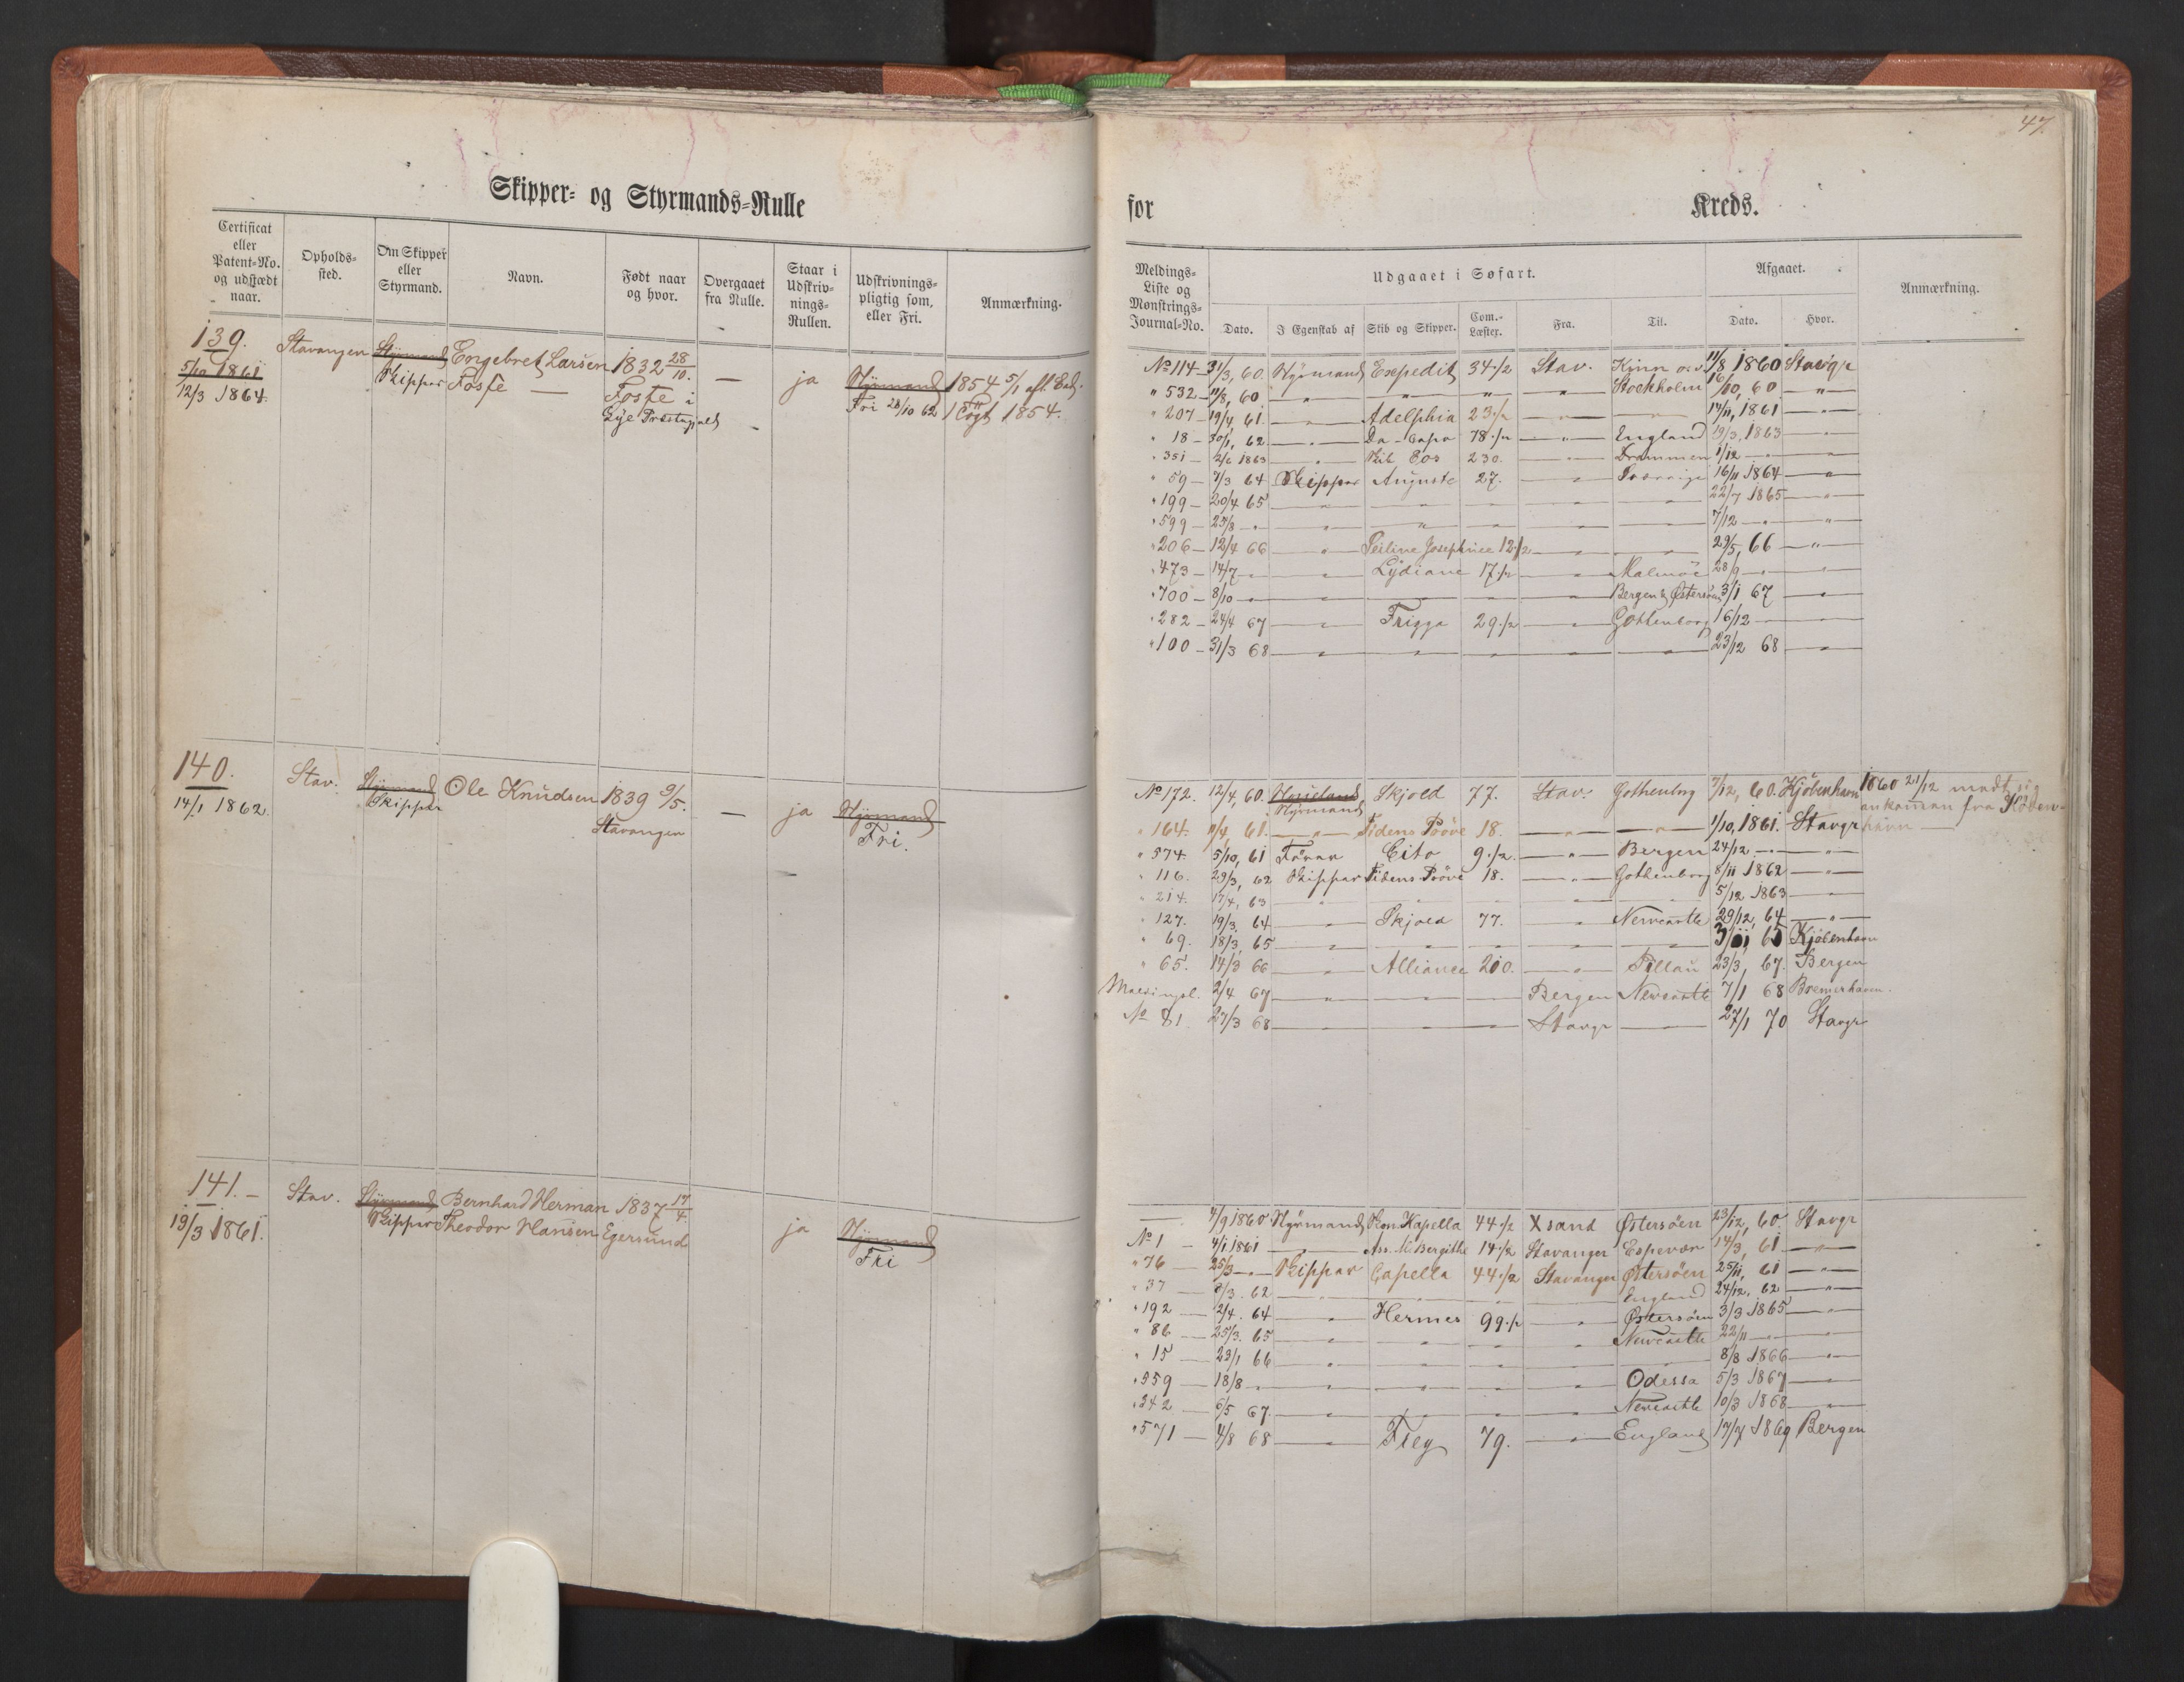 47.
Skipper- og Styrmands-Rulle
for Kreds.
Certificat eller Patent-No. og udstædt naar.
Opholds-sted.
Om Skipper eller Styrmand.
Navn.
Født naar og hvor.
Overgaaet fra Rulle.
Staar i Udskriv-nings-Rullen.
Udskrivnings-pligtig som, eller Fri.
Anmærkning.
Meldings-Liste og Mønstrings-Journal-No.
Udgaaet i Søfart.
Dato. I Egenskab af Skib og Skipper. Com.-Læster. Fra. Til.
Afgaaet.
Dato. Hvor.
Anmærkning.
139. Stavanger Styrmand Engebret Larsen 1832 28/10. — ja Styrmand 1854 5/1 afl. Ed.
5/10 1861 Skipper Foste — Foste i Fri 28/10 62 1 Togt 1854.
12/3 1864. Lye Præstegjeld
No 114 — 31/3, 60. Styrmand Expedit 34 1/2 Stav. Kinn o.s.v. 11/8 1860 Stavgr
" 532 — 11/8, 60 — " — " — " — " — Stockholm 16/10, 60 — " —
" 207 — 19/4, 61. — " — Adelphia 23 1/2 — " — — " — 14/11, 1861 — " —
" 18 — 30/1, 62 — " — Da-Capo 78 1/2 — " — England 19/3, 1863 — " —
" 351 — 2/6 1863 — " — Skib Eos 230. — " — Drammen 1/12 — " — — " —
" 59 — 7/3 64 Skipper Auguste 27. — " — Sverrige 16/11 1864 — " —
" 199 — 20/4 65 — " — — " — — " — — " — — " — 22/7 1865 — " —
" 599 — 25/8 — " — — " — — " — — " — — " — — " — 7/12 — " — — " —
" 206 — 12/4 66 — " — Josephine 12 1/2 — " — — " — 29/5, 66 — " —
" 473 — 14/7 — " — — " — Lydiane 17 1/2 — " — Malmöe 28/9 — " — — " —
" 700 — 8/10 — " — — " — — " — — " — — " — Bergen & Østersøen 3/1 67 — " —
" 282 — 24/4 67 — " — Frigga 29 1/2 — " — Gothenborg 16/12 — " — — " —
" 100 — 31/3 68 — " — — " — — " — — " — — " — 23/12 68 — " —
140. Stav. Styrmand Ole Knudsen 1839 9/5. — ja Styrmand
14/1 1862. Skipper Stavanger Fri.
No 172. 12/4, 60. Styrmand Skjold 77. Stav. Gothenborg 7/12, 60. Kjöbenhavn 1860 21/12 mödt
" 164. 11/4, 61. — " — Tidens Pröve 18. — " — — " — 1/10, 1861. Stavgr
" 574. 5/10, 61 Förer Cito 9 1/2. — " — Bergen 24/12 — " — — " —
" 116. 29/3, 62 Skipper Tidens Pröve 18. — " — Gothenborg 8/11 1862 — " —
" 214. 17/4, 63 — " — — " — — " — — " — — " — 5/12 1863 — " —
" 127. 19/3, 64 — " — Skjold 77. — " — Newcastle 29/12, 64 — " —
" 69. 18/3, 65 — " — — " — — " — — " — — " — 3/11, 65 Kjöbenhavn
" 65. 14/3 66 — " — Alliance 210. — " — Pillau 23/3, 67. Bergen
Meldingsl. 2/4 67 — " — — " — — " — Bergen Newcastle 7/1 68 Bremerhaven.
No 81. 27/3 68 — " — — " — — " — Stavgr — " — 27/1 70 Stavgr
141. — Stav. Styrmand Bernhard Herman 1837 17/4. ja Styrmand
19/3 1861. Skipper Theodor Hansen Egersund Fri
— 4/9 1860 Styrmand Kapella 44 1/2 X sand Østersøen 23/12, 60. Stavgr
No 1 — 4/1 1861 — " — Bergitthe 14 1/2 Stavanger Espevær 14/3, 61 — " —
" 76 — 25/3 — " — Skipper Capella 44 1/2 Stavanger Østersøen 25/11, 61 — " —
" 37 — 8/3. 62 — " — — " — — " — — " — England 24/12, 62 — " —
" 192 — 2/4. 64 — " — Hermes 99 1/2 — " — Østersøen 3/3 1865 — " —
" 86 — 25/3. 65 — " — — " — — " — — " — Newcastle 22/11 — " — — " —
" 15 — 29/1 66 — " — — " — — " — — " — — " — 8/8 1866 — " —
" 559 — 18/8 — " — — " — — " — — " — — " — Odessa 5/3 1867 — " —
" 342 — 6/5 67. — " — — " — — " — — " — Newcastle 10/3 1868 — " —
" 571 — 4/8 68 — " — Fleg 79. — " — England 17/7 1869 Bergen